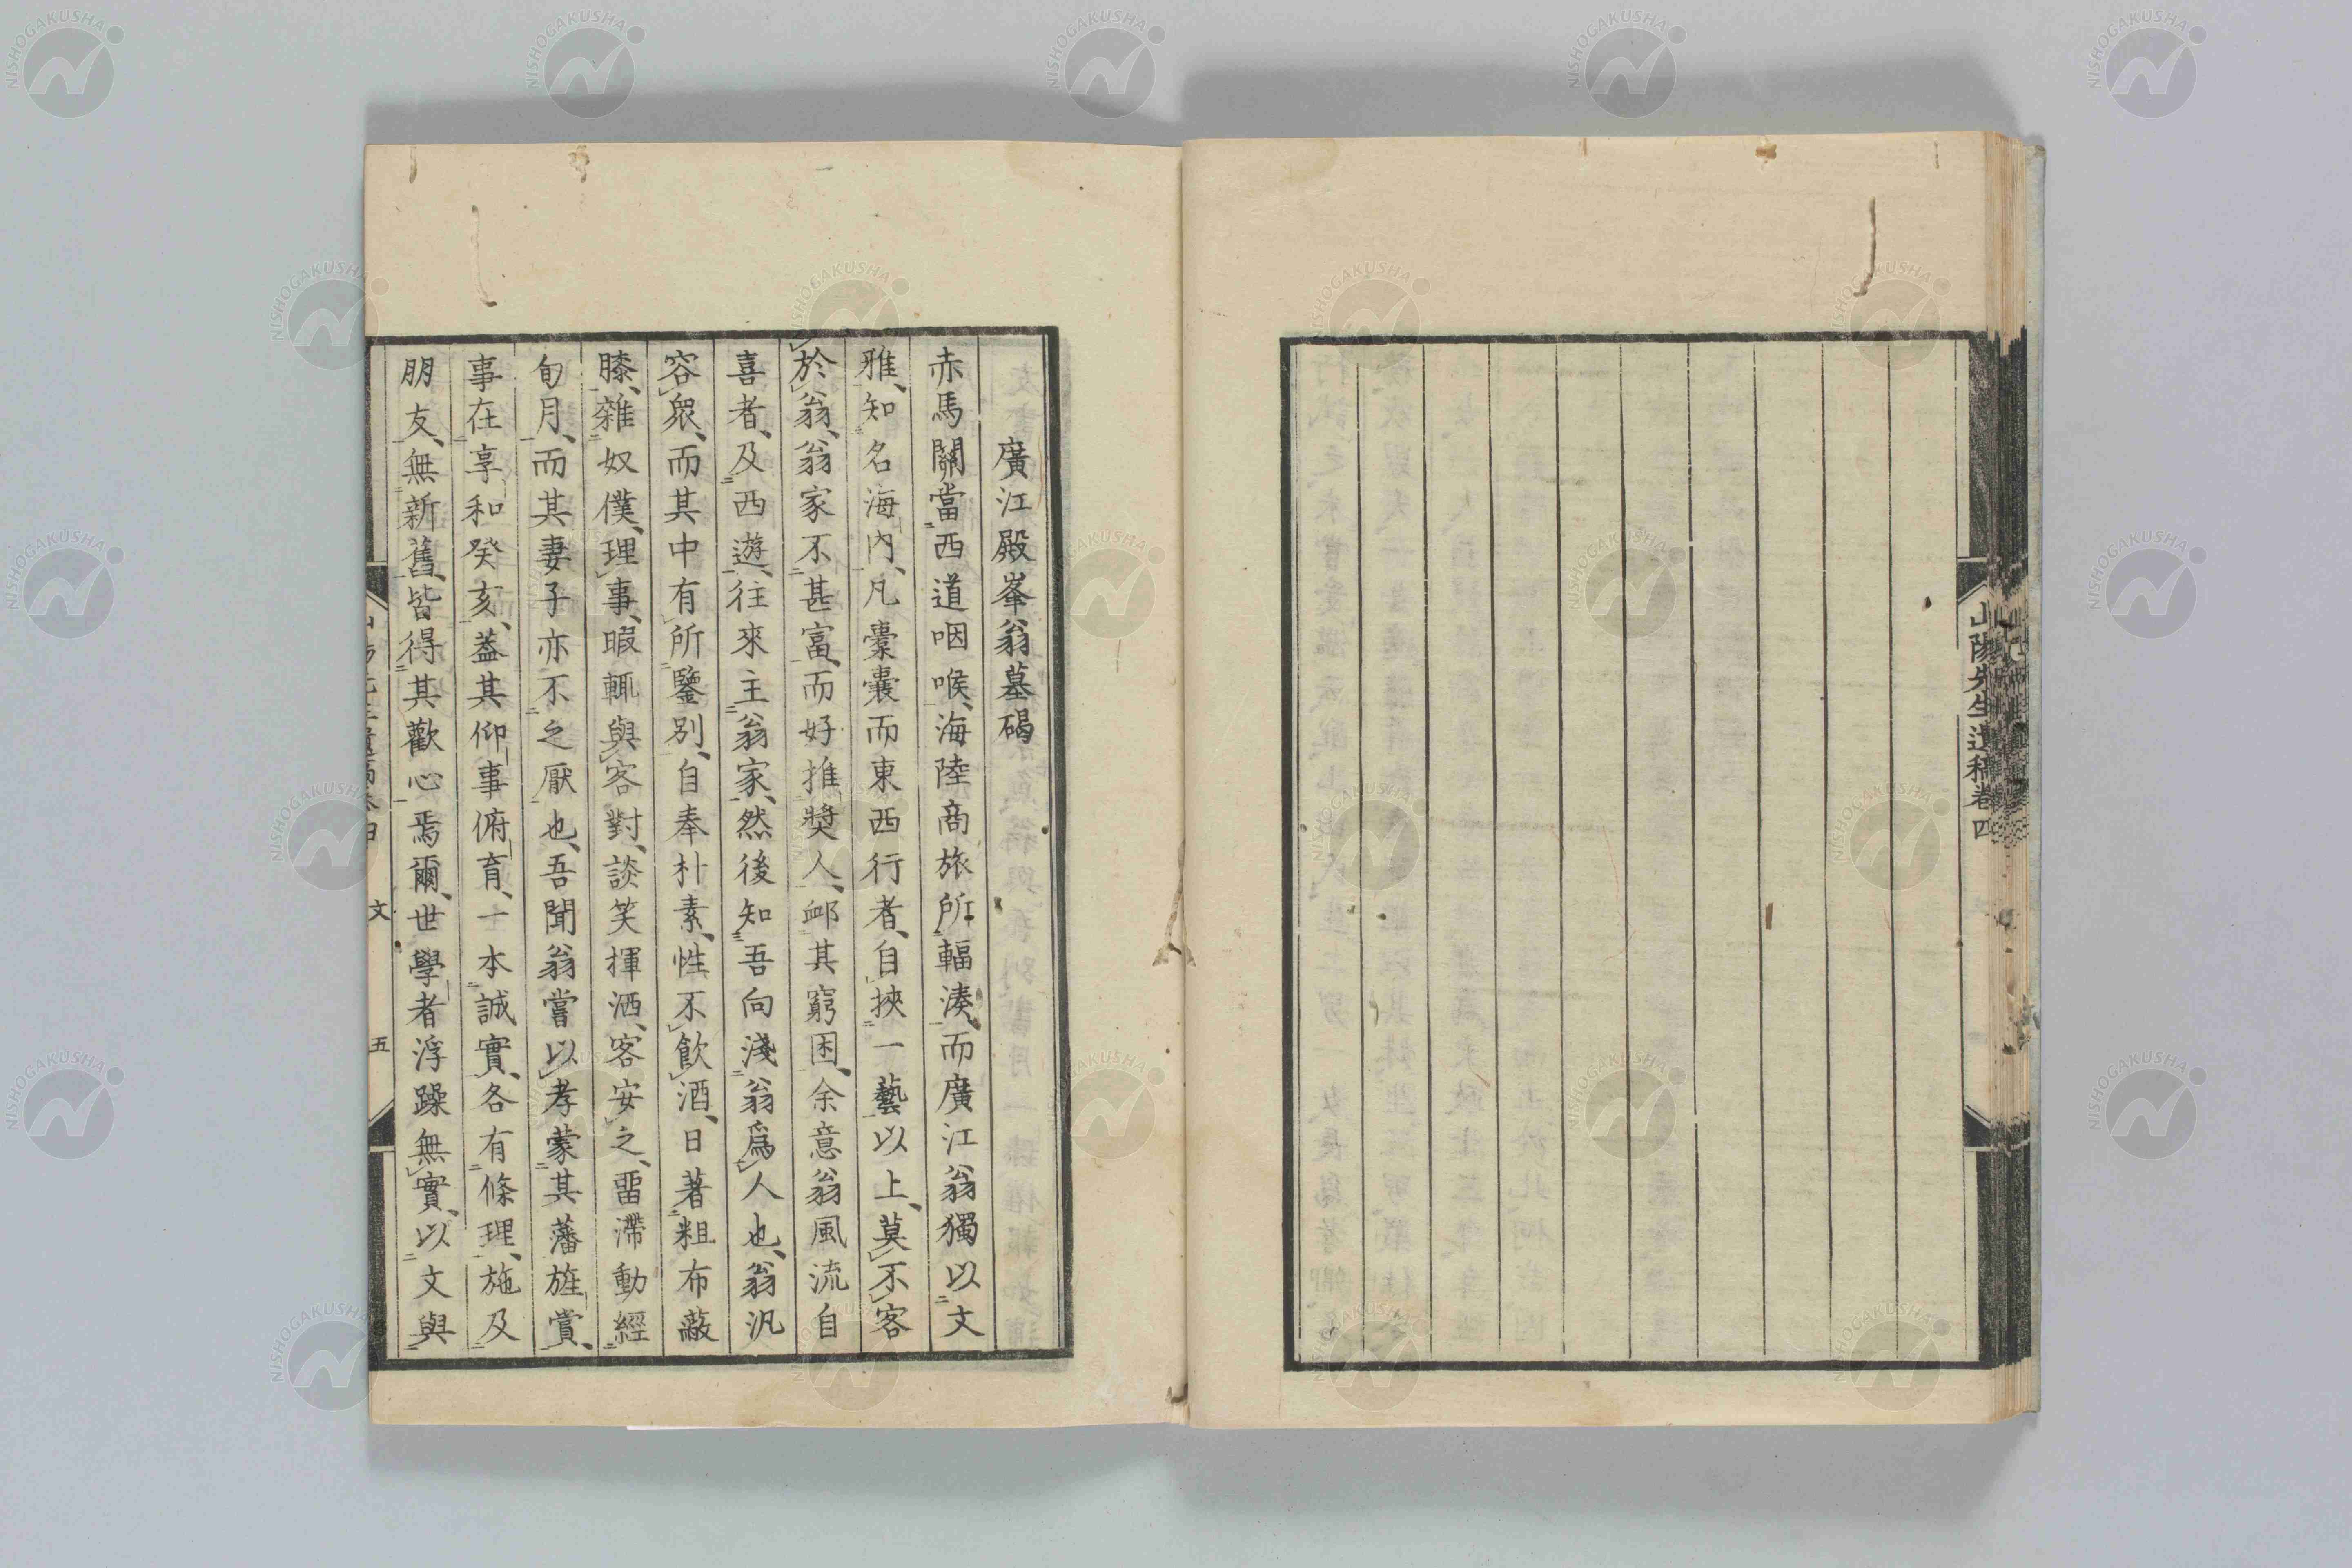 山陽先生遺稿卷四
廣江殿峯翁墓碣
赤馬關當西道咽喉、海陸商旅所輻湊、而廣江翁獨以文
雅、知名海內、凡橐囊而東西行者、自挾一藝以上、莫不客
於翁、翁家不甚富、而好推獎人、卹其窮困、余意翁風流自
喜者、及西遊、往來主翁家、然後知吾向淺翁爲人也、翁汎
容眾、而其中有所鑒別、自奉朴素、性不飲酒、日著粗布蔽
膝、雜奴僕、理事、暇輒與客對、談笑揮洒、客安之、畱滯動經
旬月、而其妻子亦不之厭也、吾聞翁嘗以孝蒙其藩旌賞、
事在享和癸亥、葢其仰事俯育、一本誠實、各有條理、施及
朋友、無新舊、皆得其歡心焉爾、世學者浮躁無實、以文與
文
五
NISHOGAKUSHA